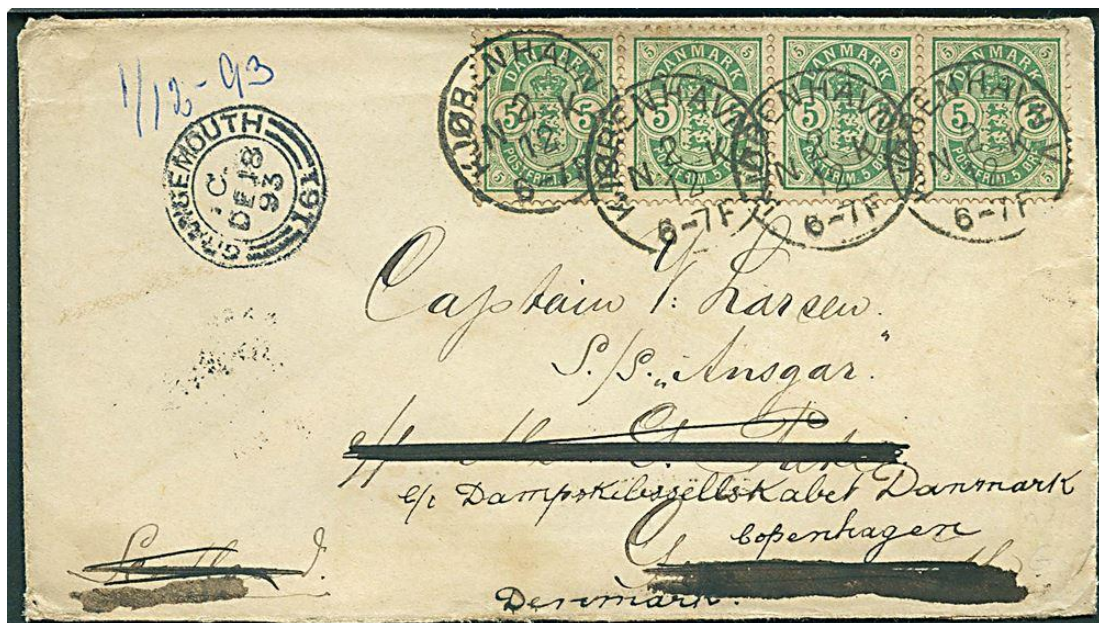 1/12-93
GRANGEMOUTH
C
DE 18
93
191
DANMARK
5 5
POSTFRIM. 5 ØRE
DANMARK
5 5
POSTFRIM. 5 ØRE
DANMARK
5 5
POSTFRIM. 5 ØRE
DANMARK
5 5
POSTFRIM. 5 ØRE
KJØBENHAVN K
N. 2 K
12
6-7F
KJØBENHAVN K
N. 2 K
12
6-7F
KJØBENHAVN K
N. 2 K
12
6-7F
KJØBENHAVN K
N. 2 K
12
6-7F
Captain Y: Larsen
S./S. „Ansgar"
c/o Dampskibssellskabet Danmark
Copenhagen
Denmark.